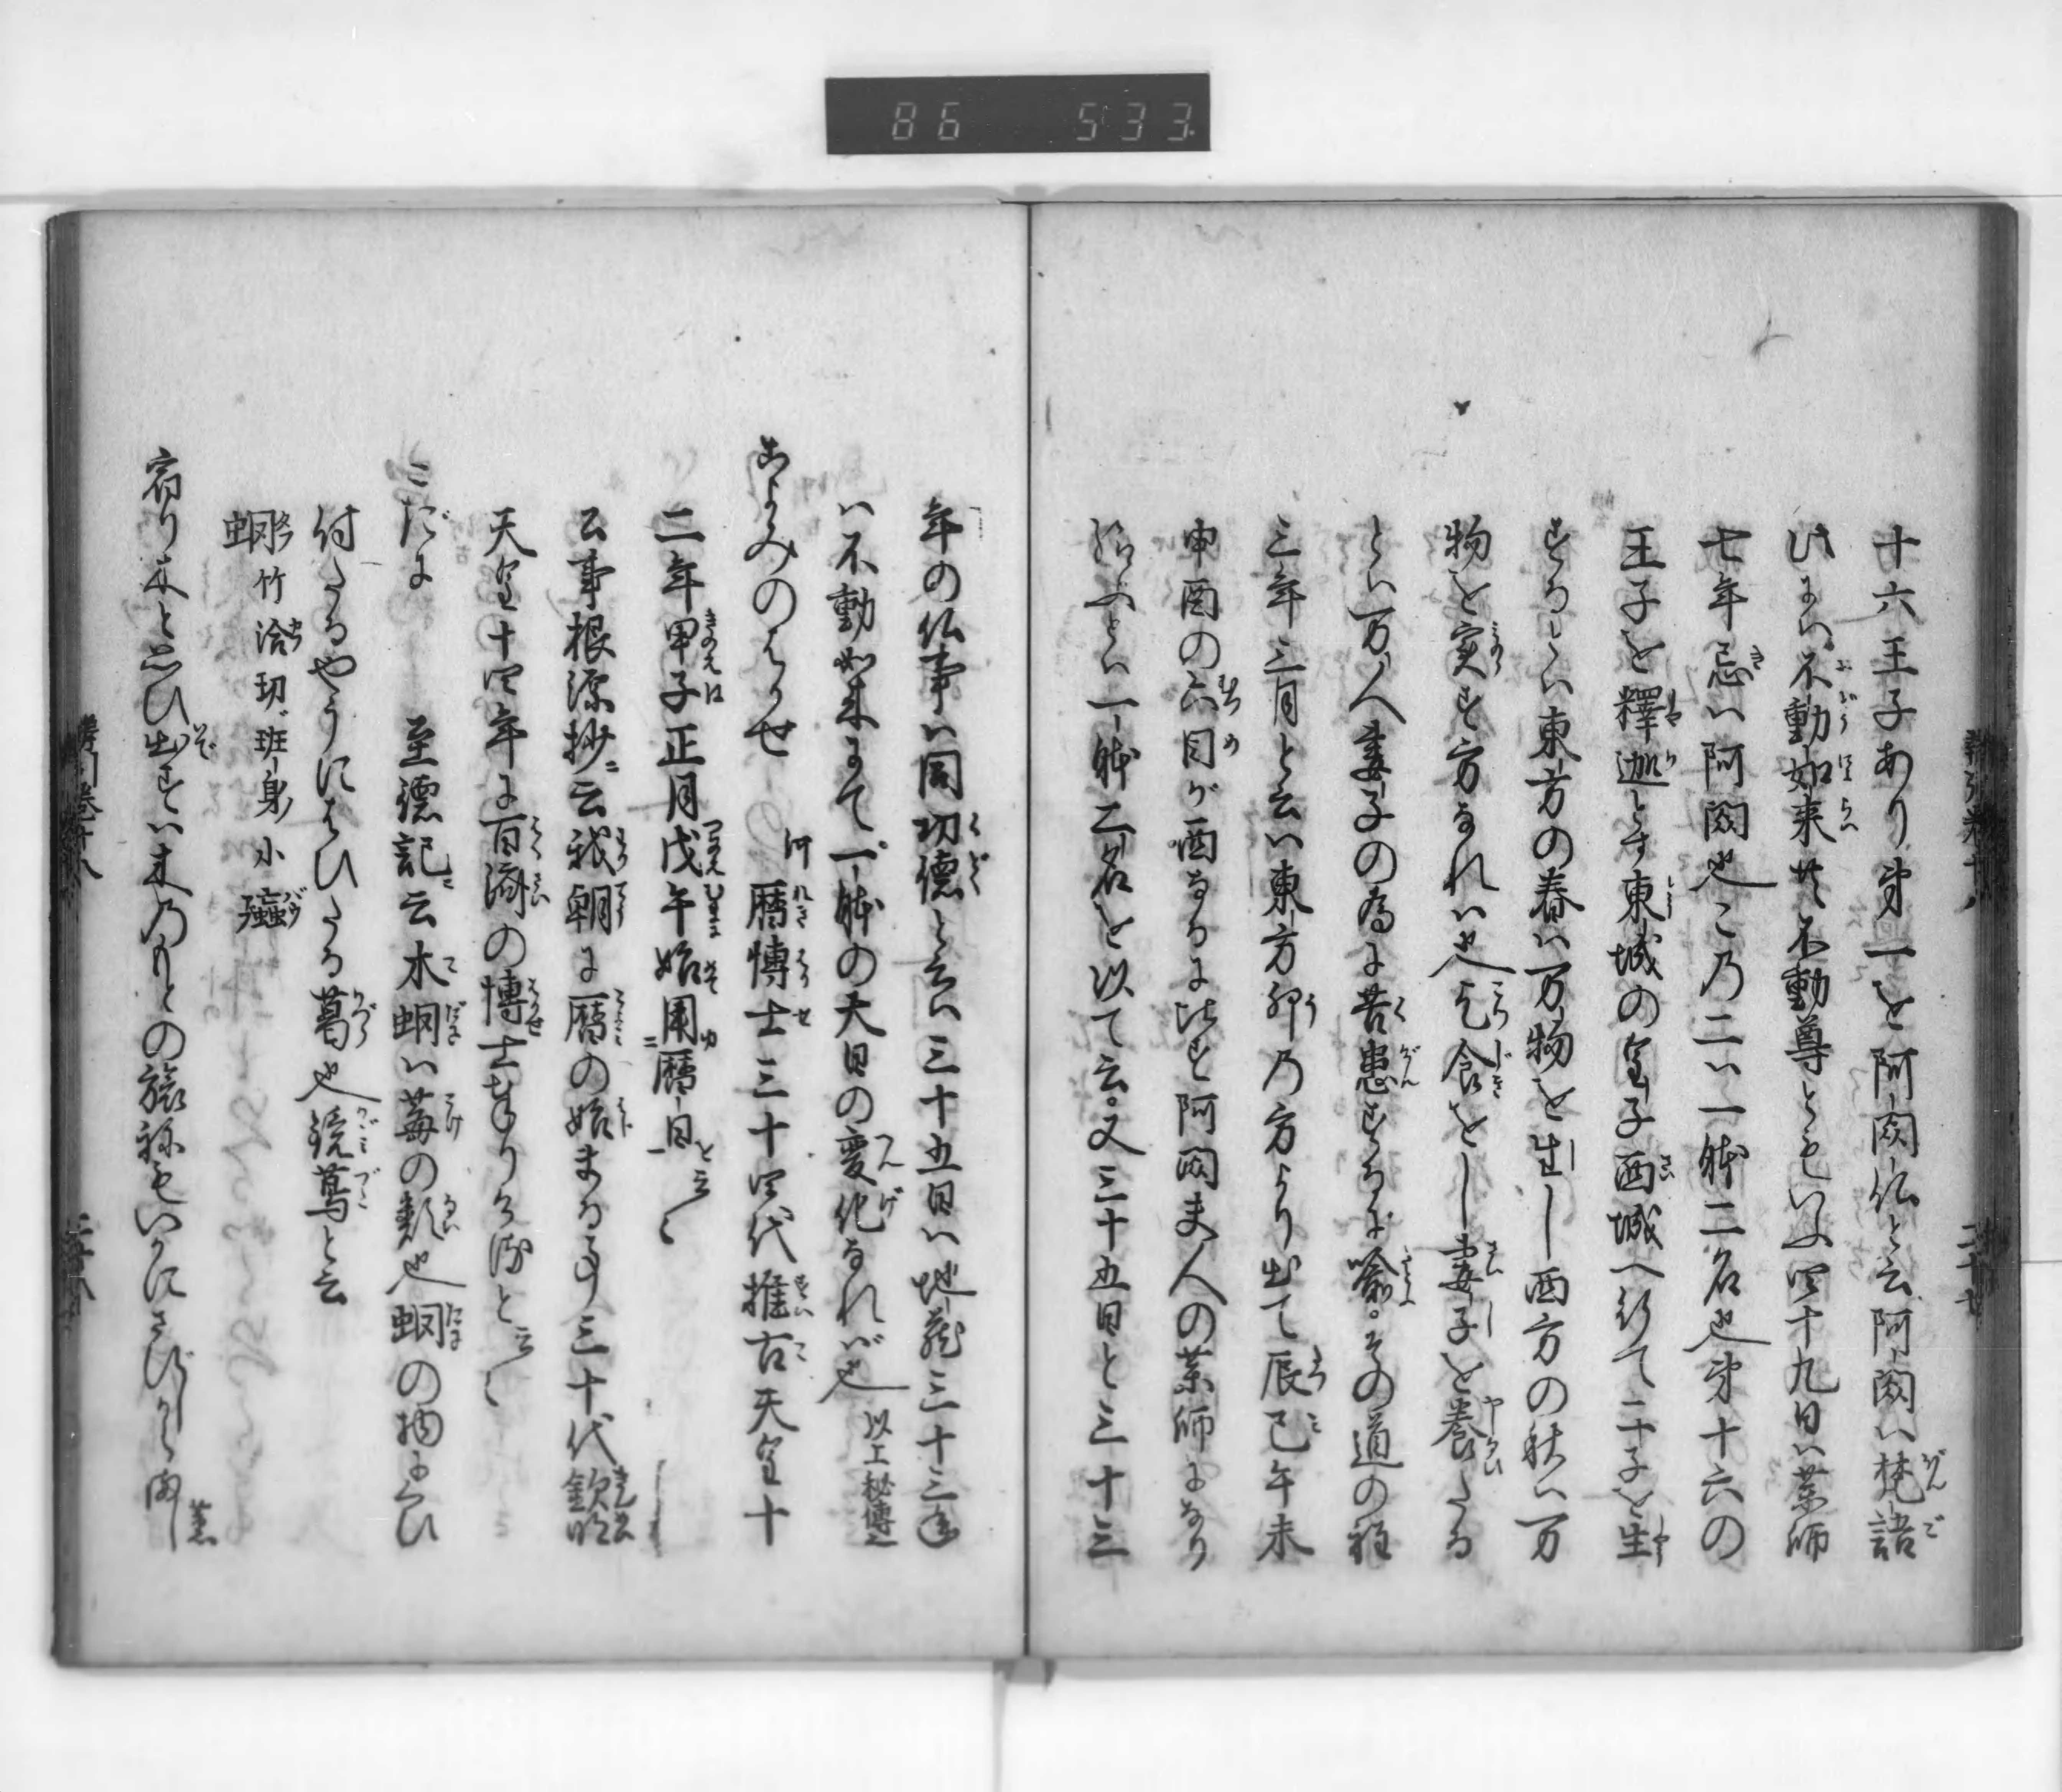 86 533
十六王子あり第一を阿閦仏と云阿閦ハ梵語
此にハ不動如来共不動尊ともいふ四十九日ハ薬師
七年忌ハ阿閦也この二ハ一躰二名也第十六の
王子を釋迦とす東城の皇子西城へ行て二子を生
するハ東方の春ハ万物を生し西方の秋ハ万
物を実す方なれハ也乞食をし妻子を養たる
とハ万人妻子の為に苦患するに喩。その道の程
三年三月と云ハ東方卯乃方より出て辰巳午未
申酉の六目が酉なるに比す阿閦夫人の薬師になり
給ふとハ一躰二名を以て云。又三十五日と三十三
年の仏事ハ同功徳と云ハ三十五日ハ地蔵三十三年
ハ不動如来にて一躰の大日の変化なれバ也 以上秘傳之
こよみのはかせ 暦博士三十四代推古天皇十
二年甲子正月戊午始用暦日と云々
公事根源抄ニ云我朝に暦の始まる事三十代欽明
天皇十四年に百済の博士奉りける と云々
こだに 至徳記ニ云木蚋ハ苺の類也 の物にはひ
付たるやうにはひたる葛也鏡蔦と云
竹洽切班身小
宿り木と思ひ出すハ木乃もとの旅ねもいかにさびしからまし 薫